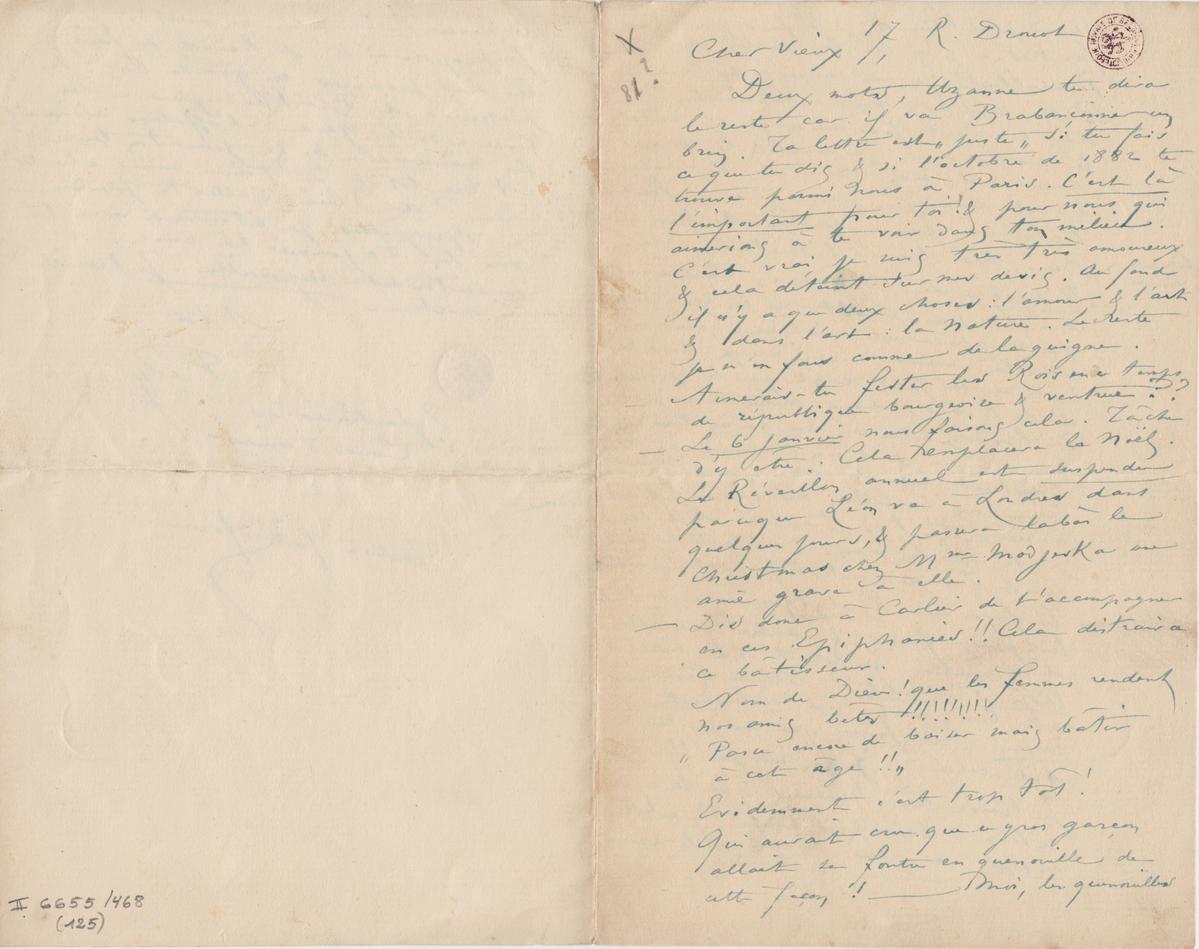 X
81?
17 R. Drouot
Cher Vieux,
Deux mots, Uzanne te dira
le reste car il va Brabançonner un
brin. Ta lettre est „juste„ si tu fais
ce que tu dis & si l'octobre de 1882 te
trouve parmi nous à Paris. C'est là
l'important pour toi! & pour nous qui
aimerions à te voir dans ton milieu.
C'est vrai je suis très très amoureux
& cela déteint sur mes devis. Au fond
il n'y a que deux choses: l'amour & l'art
& dans l'art: la Nature. Le reste
je m'en fous comme de la guigne.
Aimerais-tu fester les Rois en ce temps
de république bourgeoise & ventrue??
Le 6 janvier nous faisons cela. Tâche
d'y être. Cela remplacera la Noël.
Le Réveillon annuel est suspendu
parceque Léon va à Londres dans
quelques jours, & passera labas le
Christmas chez Mme Modjeska une
amie grave à elle.
Dis donc à Carlier de t'accompagner
en ces Epiphanies!! Cela distraira
ce bâtisseur.
Nom de Dieu! que les femmes rendent
nos amis bêtes !!!!!!!!
„Passe encore de baiser mais bâtir
à cet âge!!„
Evidemment c'est trop tôt!
Qui aurait cru que ce gros garçon
allait se foutre en quenouille de
cette façon! — Moi, les quenouilles
II 6655/468
(125)